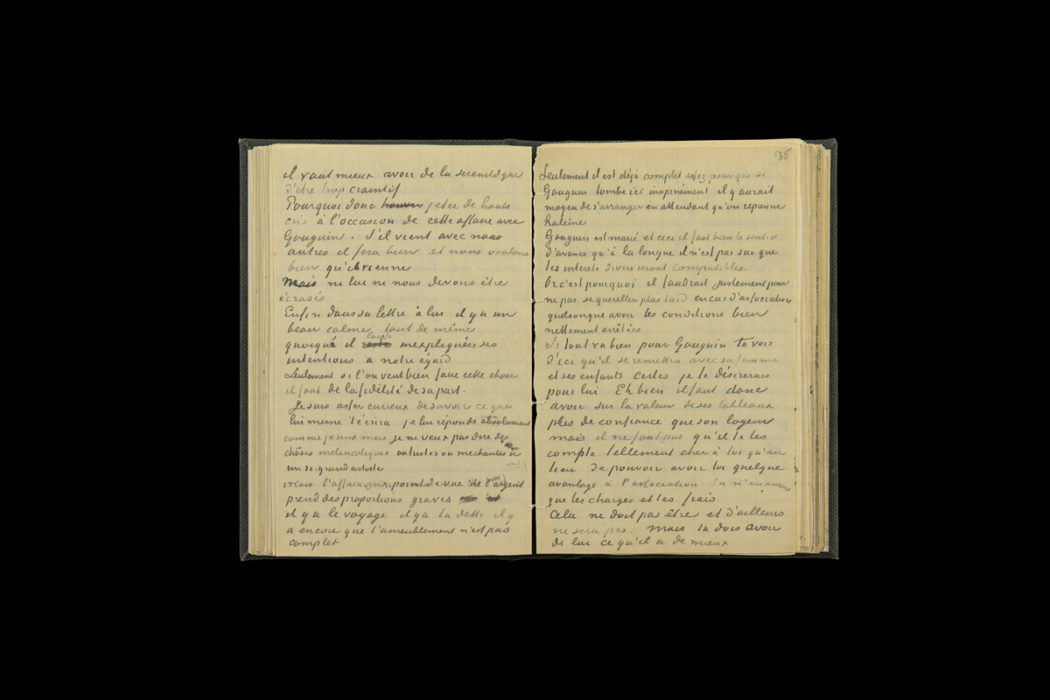 il vaut mieux avoir de la serenité que
d'etre trop craintif
Pourquoi donc jeter de hauts
cris à l'occasion de cette affaire avec
Gauguin. S'il vient avec nous
autres il fera bien et nous voulons
bien qu'il vienne
Mais ni lui ni nous devons être
écrasés
Enfin dans sa lettre à lui il y a un
beau calme tout de même
quoique il laisse inexpliquées ses
intentions a notre égard
Seulement si l'on veut bien faire cette chose
il faut de la fidélité de sa part.
Je suis assez curieux de savoir ce que
lui meme t'écrira je lui réponds absolument
comme je sens mais je ne veux pas dire des
choses melancoliques ou tristes ou mechantes à
un si grand artiste
mais l'affaire au point de vue de l'argent
prend des proportions graves
il y a le voyage il y a la dette il y
a encore que l'ameublement n'est pas
complet
35
Seulement il est déjà complet assez pour que si
Gauguin tombe ici inopinément il y aurait
moyen de s'arranger en attendant qu'on reprenne
haleine
Gauguin est marié et ceci il faut bien le sentir
d'avance qu'à la longue il n'est pas sur que
les interets divers seront compatibles.
Or c'est pourquoi il faudrait justement pour
ne pas se quereller plus tard en cas d'association
quelconque avoir les conditions bien
nettement arrêtées
Si tout va bien pour Gauguin tu vois
d'ici qu'il se remettra avec sa femme
et ses enfants certes je le désirerais
pour lui Eh bien il faut donc
avoir sur la valeur de ses tableaux
plus de confiance que son logeur
mais il ne faut pas qu'il te les
compte tellement cher à toi qu'au
lieu de pouvoir avoir toi quelque
avantage à l'association tu n'en aurais
que les charges et les frais
Cela ne doit pas être et d'ailleurs
ne sera pas. Mais tu dois avoir
de lui ce qu'il a de mieux